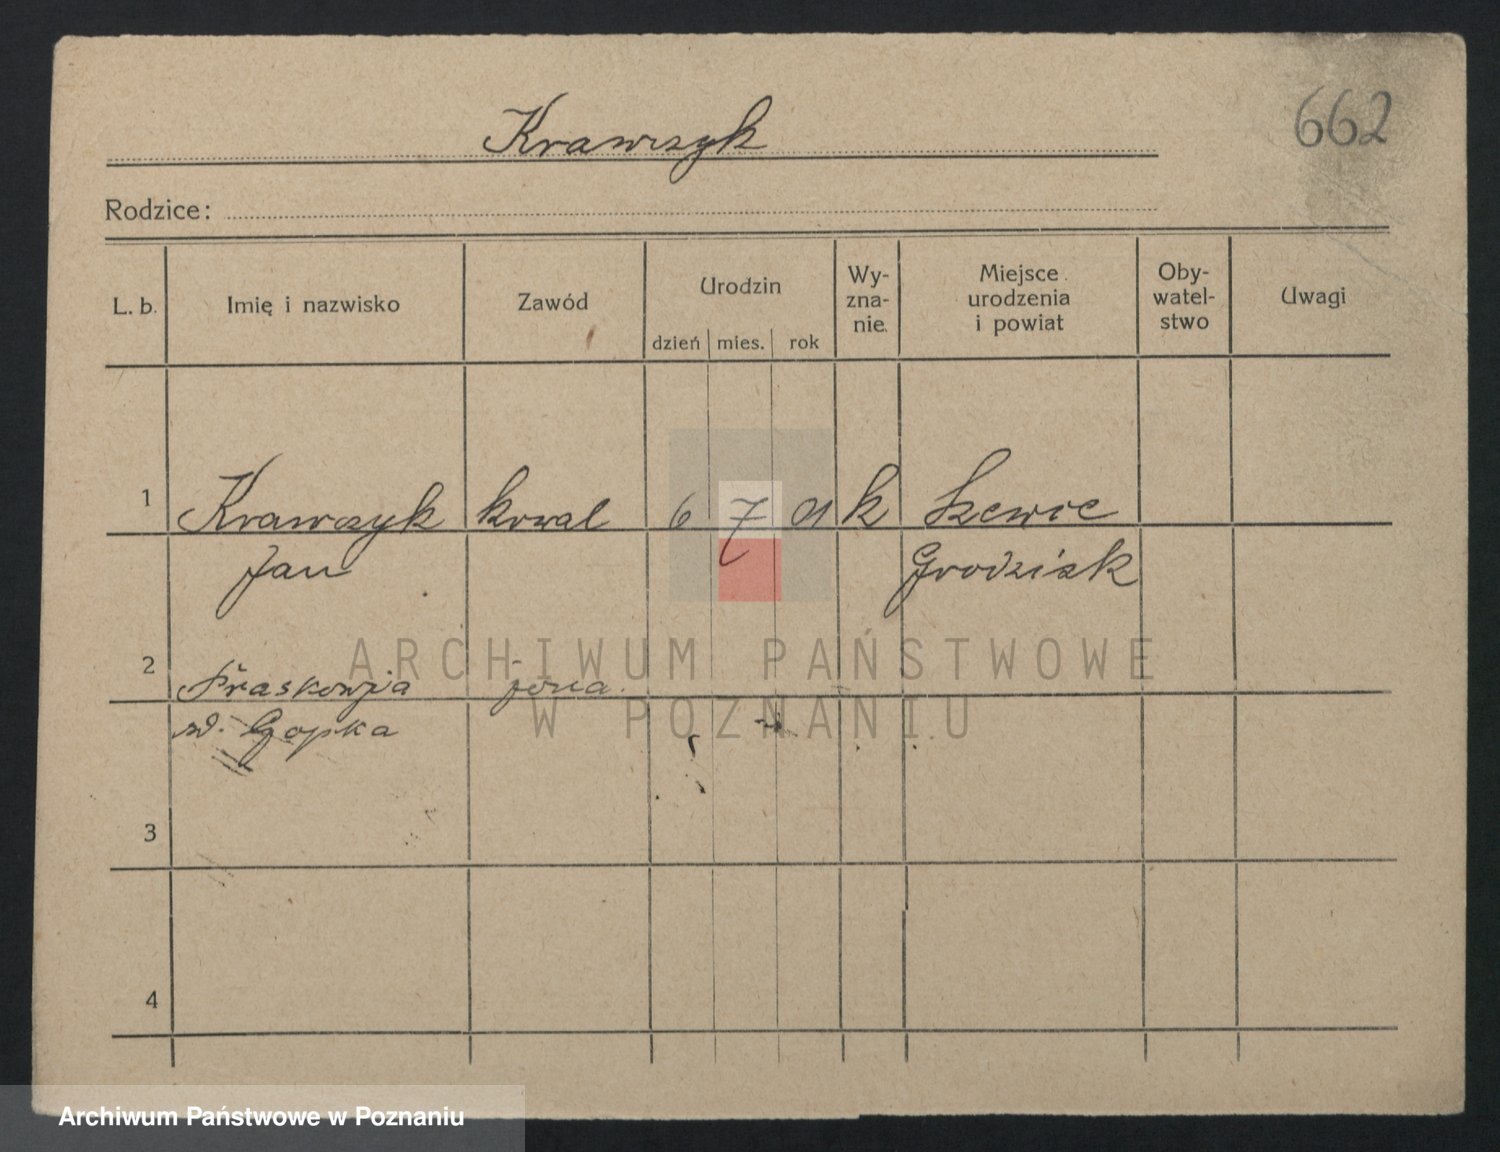 Krawczyk
662
Rodzice:
L. b.
Imię i nazwisko
Zawód
Urodzin
dzień mies. rok
Wy-
zna-
nie.
Miejsce
urodzenia
i powiat
Oby-
watel-
stwo
Uwagi
1 Krawczyk kowal 6 7 01 k Szewce
Jan Grodzisk
2 Praskowja żona.
Czopka
3
4
ARCHIWUM PAŃSTWOWE
W POZNANIU
Archiwum Państwowe w Poznaniu